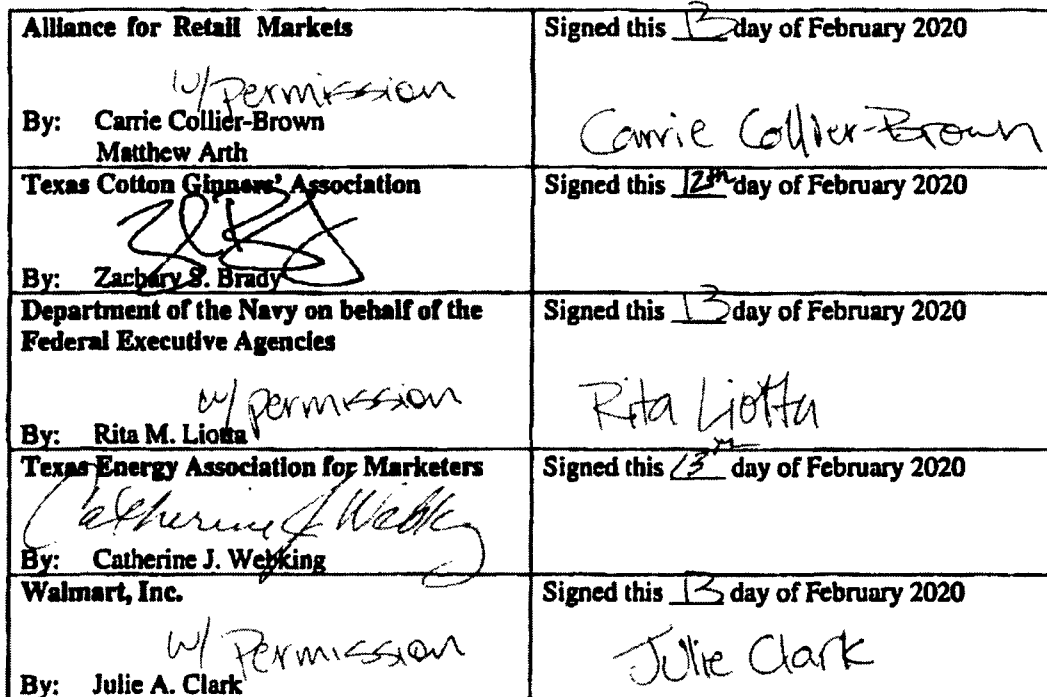 Alliance for Retail Markets
w/ permission
By: Carrie Collier-Brown
Matthew Arth
Signed this 13 day of February 2020
Carrie Collier-Brown
Texas Cotton Ginners' Association
By: Zachary S. Brady
Signed this 12th day of February 2020
Department of the Navy on behalf of the
Federal Executive Agencies
w/ permission
By: Rita M. Liotta
Signed this 13 day of February 2020
Rita Liotta
Texas Energy Association for Marketers
Catherine J Webking
By: Catherine J. Webking
Signed this 13th day of February 2020
Walmart, Inc.
w/ Permission
By: Julie A. Clark
Signed this 13 day of February 2020
Julie Clark